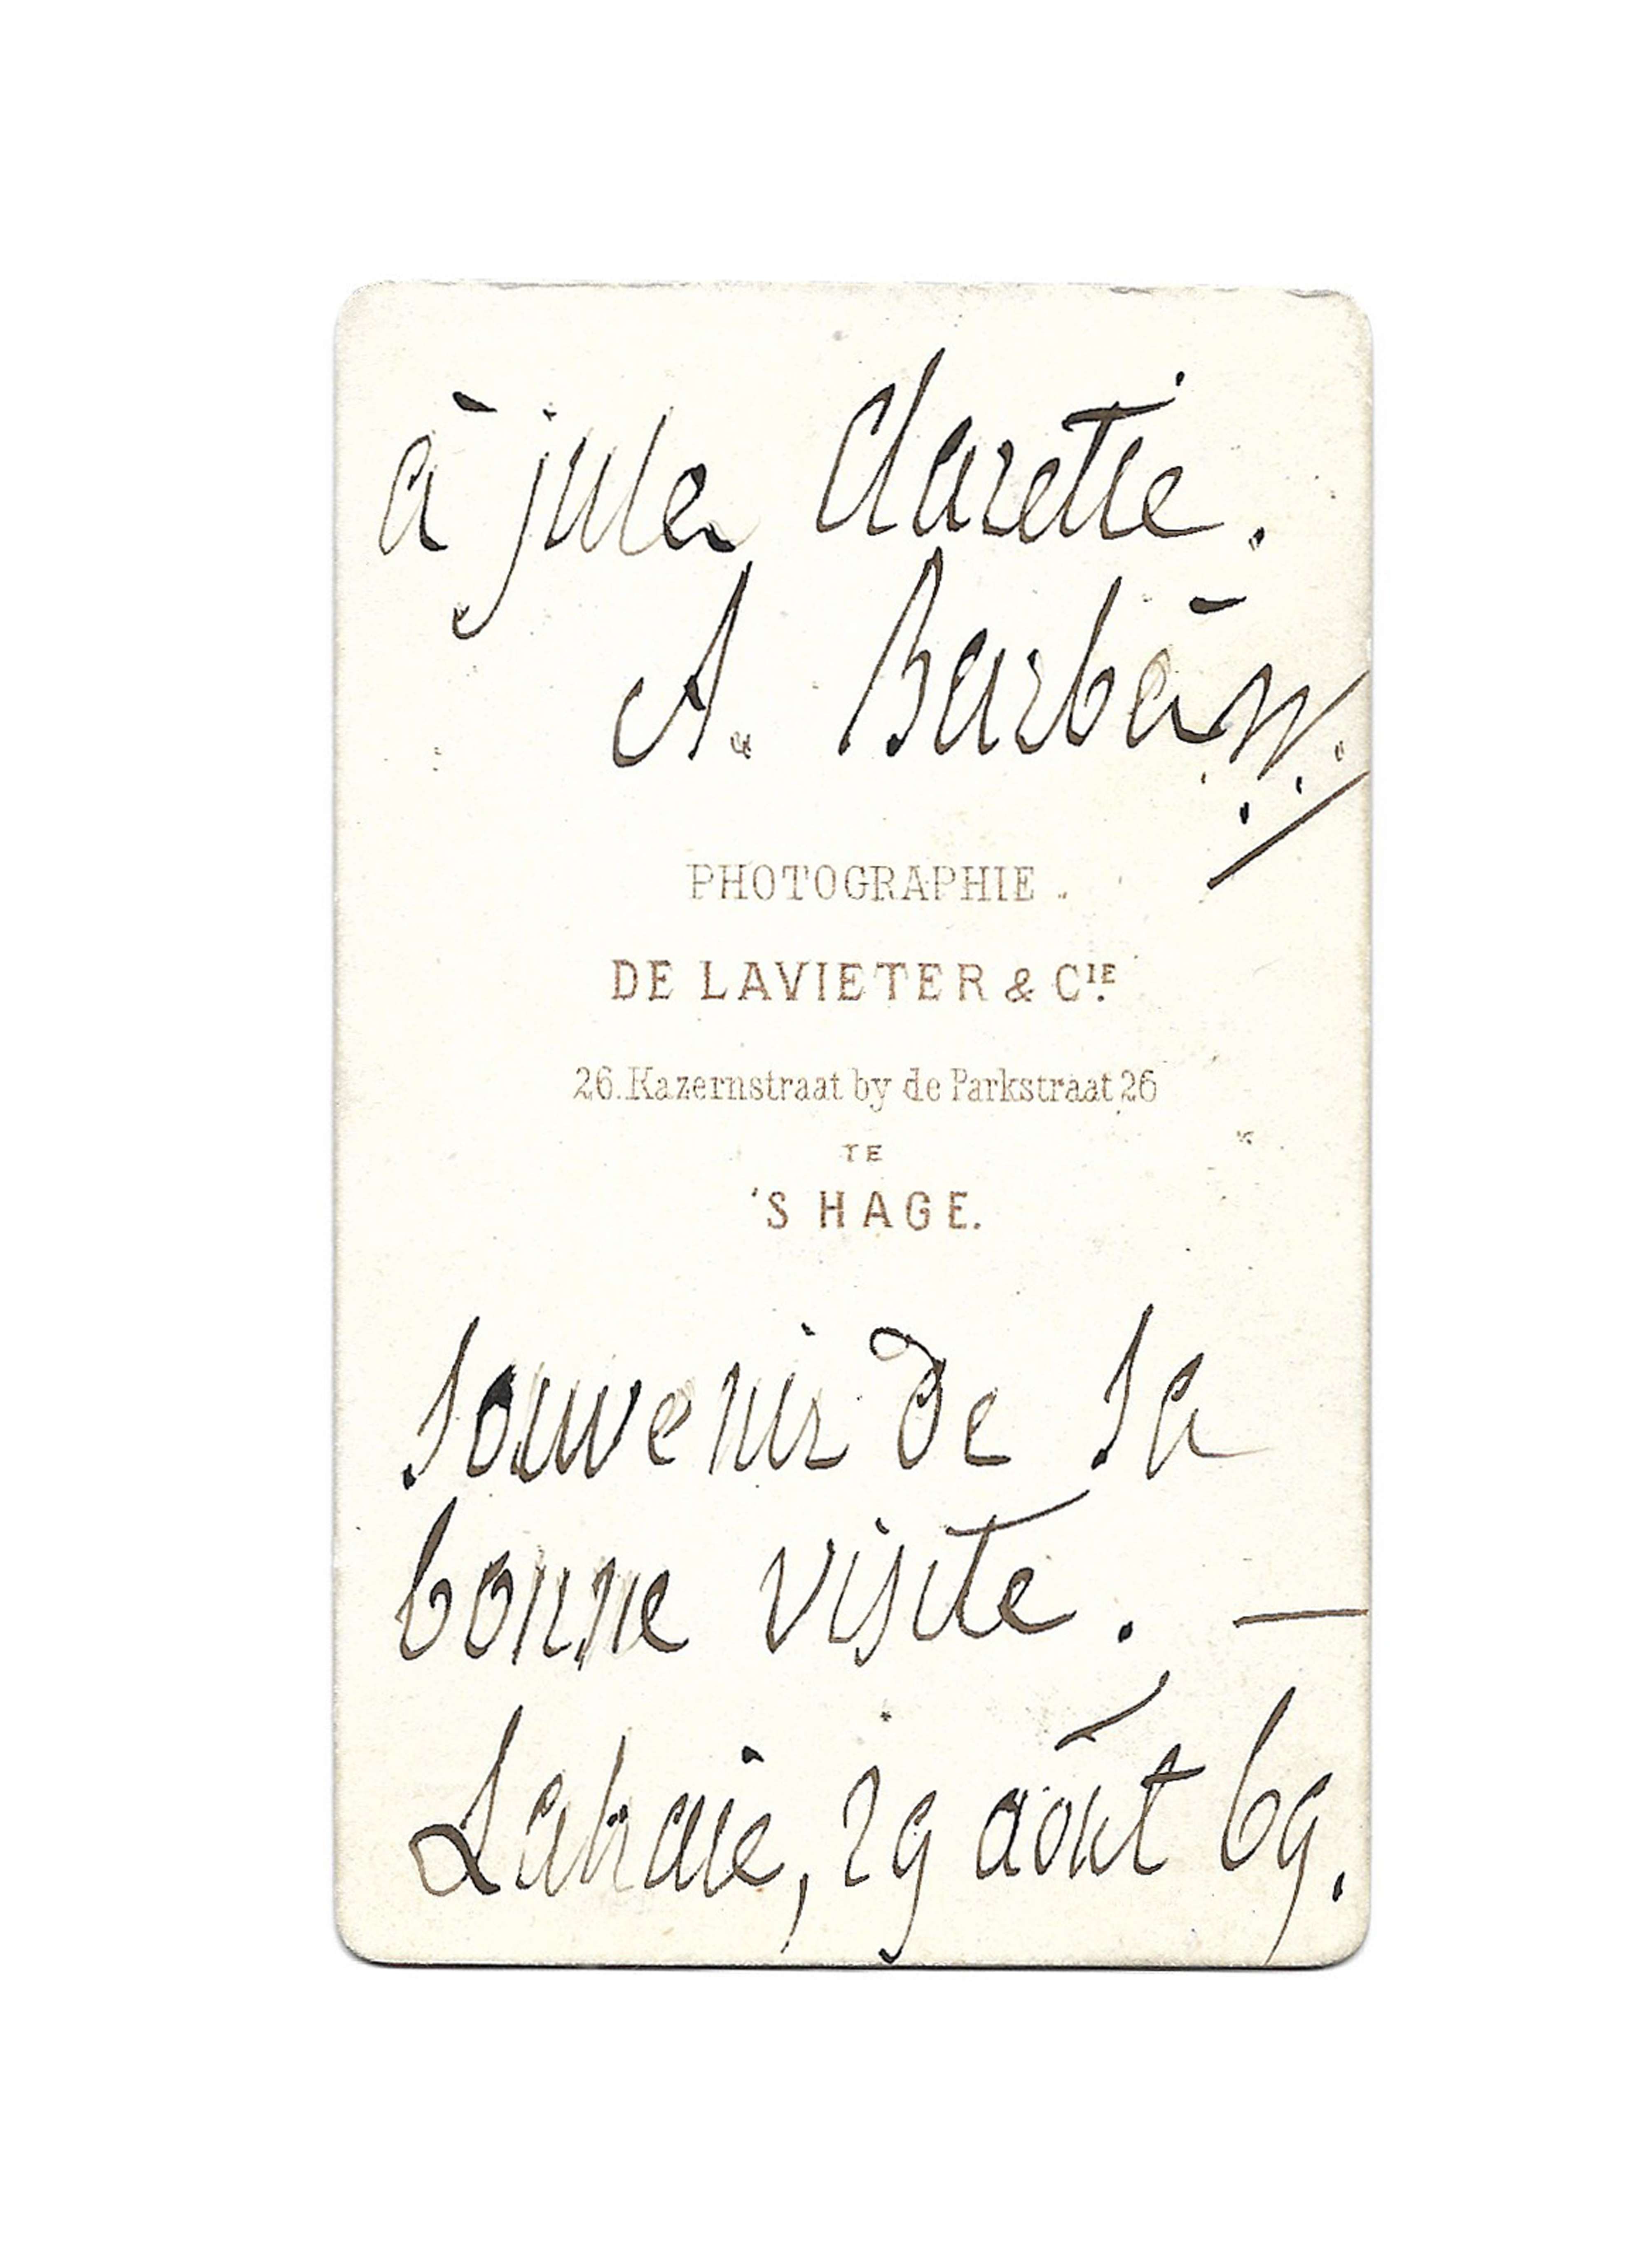 à jules Claretie.
A. Barbès
PHOTOGRAPHIE.
DE LAVIETER & CIE.
26. Kazernstraat by de Parkstraat 26
TE
'S HAGE.
Souvenir de sa
bonne visite. —
Lahaie, 29 août 69.